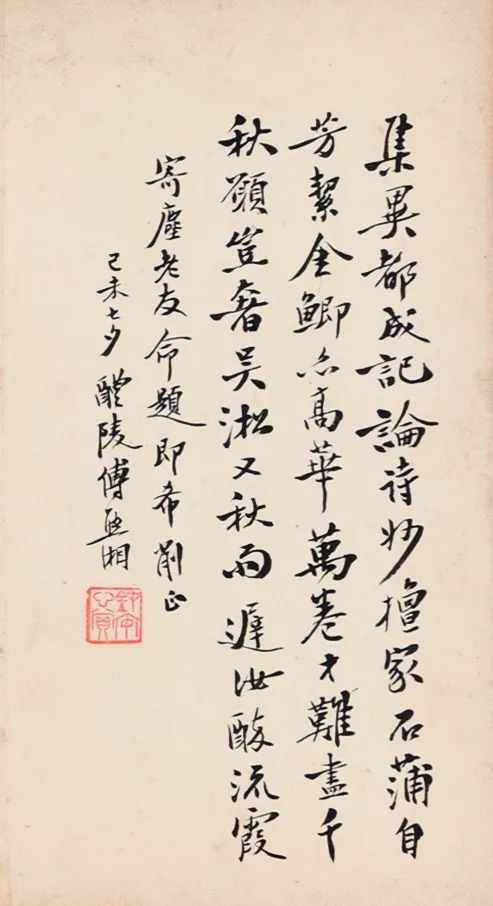 集異都成記論詩妙擅家石蒲自
芳絜金鯽亦高華萬卷才難盡千
秋願豈奢吴淞又秋雨遲汝醉流霞
寄塵老友命題即希削正
己未七夕醴陵傅熊湘